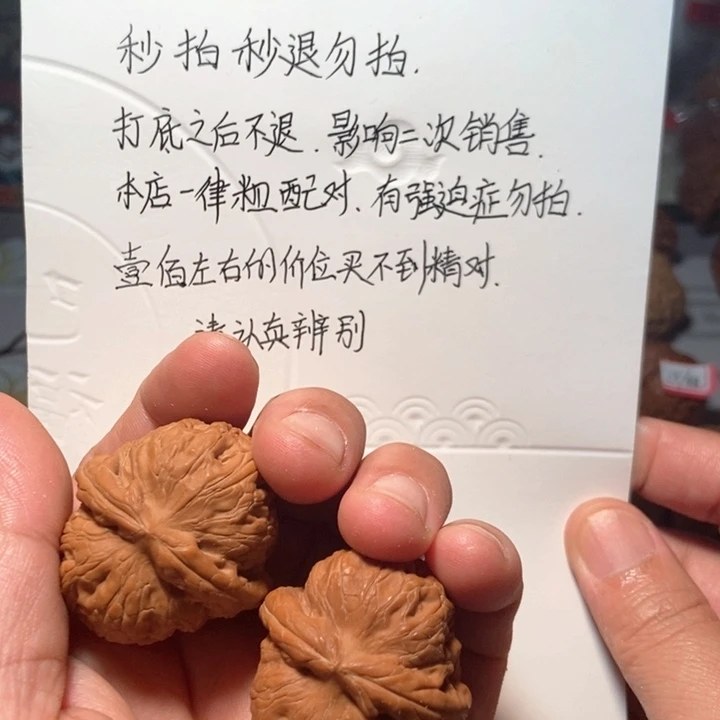 秒拍秒退勿拍.
打底之后不退.影响二次销售.
本店一律粗配对.有强迫症勿拍.
壹佰左右的价位买不到精对.
请认真辨别